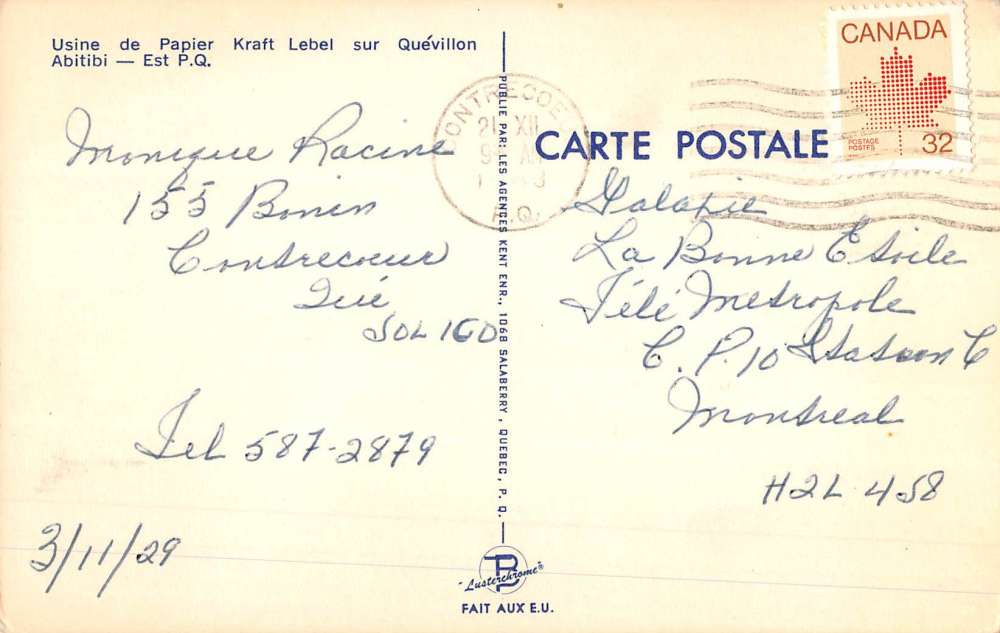 Usine de Papier Kraft Lebel sur Quévillon
Abitibi — Est P.Q.
Monique Racine
155 Bonin
Contrecoeur
Qué
J0L 1C0
Tel 587-2879
3/11/29
PUBLIÉ PAR: LES AGENCES KENT ENR., 1068 SALABERRY, QUEBEC, P. Q.
"Lusterchrome"
FAIT AUX E.U.
CARTE POSTALE
CANADA
POSTAGE
POSTES
32
CONTRECOE
XII
AM
P.Q.
Galaxie
La Bonne Etoile
Télé Metropole
C. P. 10 Station C
Montreal
H2L 4S8